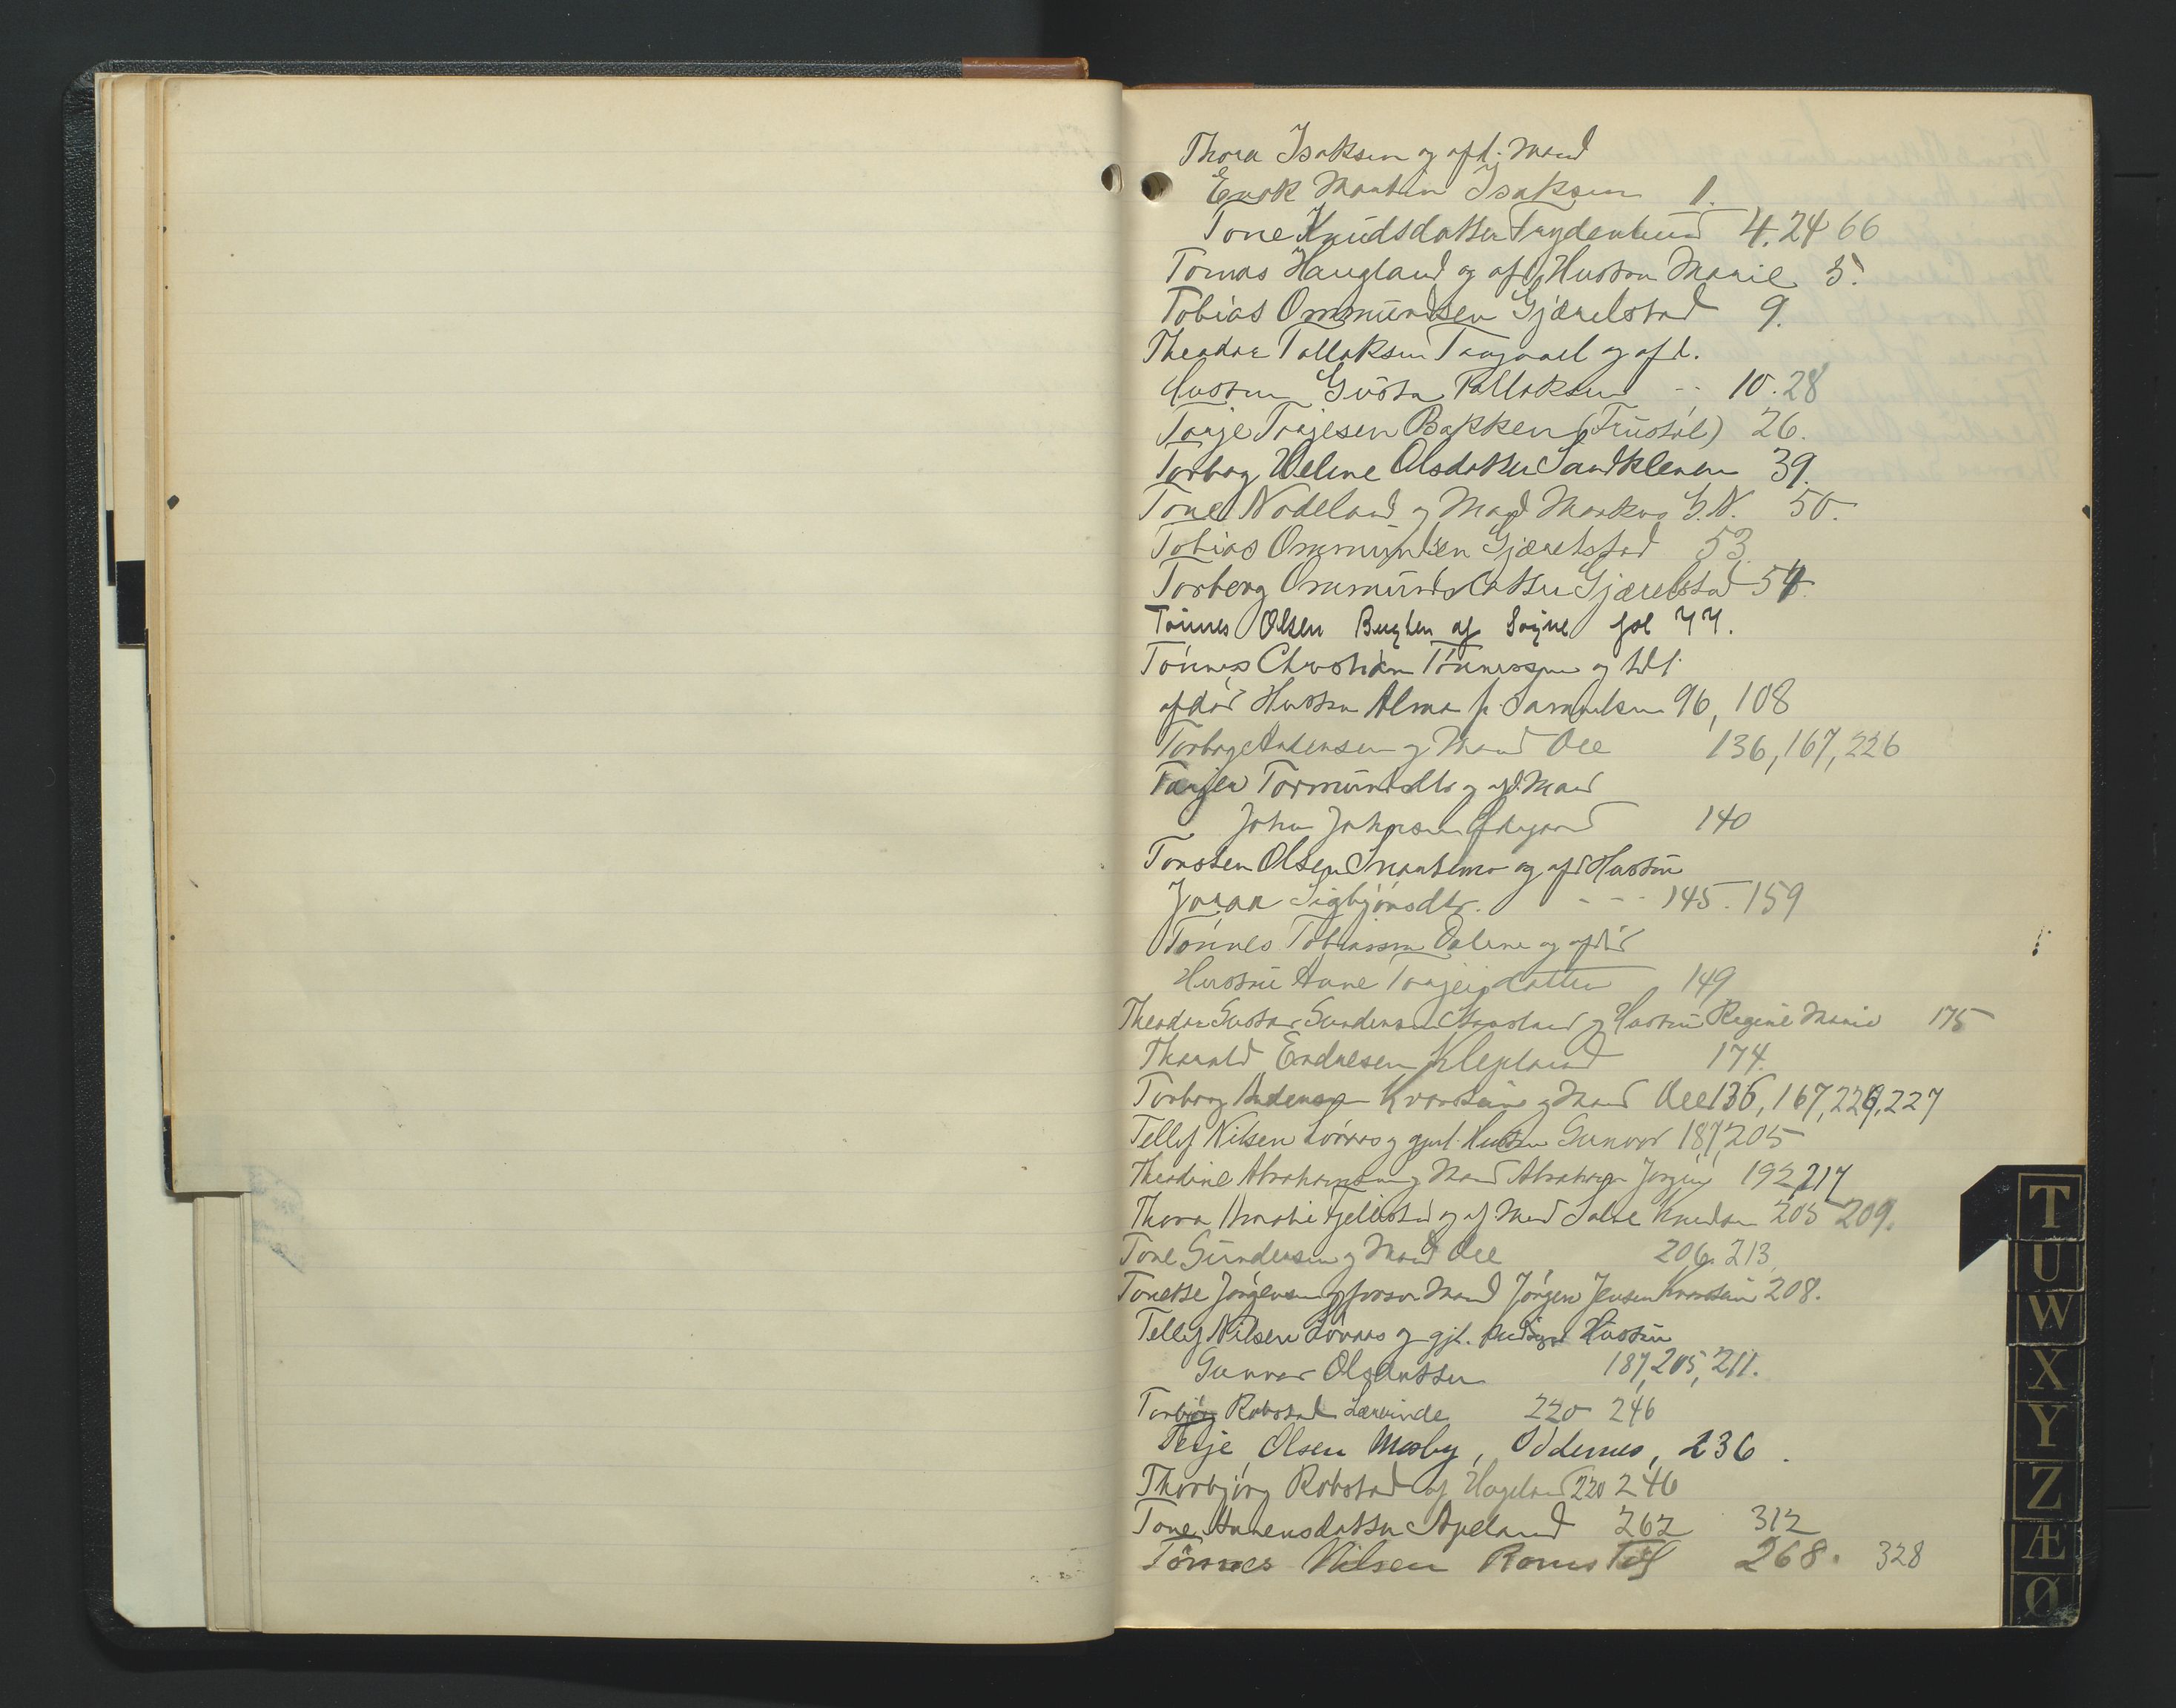 Thora Isaksen og afd. Mand
Enok Martin Isaksen 1.
Tone Knudsdatter Frydenlund 4. 24 66
Tomas Haugland og afd. Hustru Marie 5.
Tobias Ommundsen Gjærelstad 9.
Theodor Tallaksen Tangvall og afd.
Hustru Gusta Tallaksen -- 10. 28
Tarje Tarjesen Bakken (Frustøl) 26.
Torborg Veline Olsdatter Sandkleven 39.
Tone Nodeland og Mand Markus G. N. 50.
Tobias Ommundsen Gjærelstad 53
Torborg Ommundsdatter Gjærelstad 54.
Tönnes Olsen Bugten af Søgne fol 77.
Tönnes Christian Tönnessen og tidl.
afdød Hustru Alma f. Samuelsen 96, 108
Torborg Andersen og Mand Ole 136, 167, 226
Tarjer Tormundsdtr og afd. Mand
John Johnsen Ødegaard 140
Torsten Olsen Snartemo og afd Hustru
Joran Sigbjörnsdtr. - - - 145. 159
Tönnes Tobiassen Dalene og afdød
Hustru Anne Tarjeisdatter 149
Theodor Gustav Gundersen og Hustru Regine Marie 175
Tharald Endresen Klepland 174.
Torborg Andersen Kvarstein og Mand Ole 136, 167, 226, 227
Tellef Nilsen Lövaas og gjenl. Hustru Gunvor 187, 205
Theodine Abrahamsen og Mand Abraham Jörgen 192, 217
Thora Amalie Gjellestad og afd. Mand Salve Knudsen 205 209.
Tone Gundersen og Mand Ole 206. 213.
Tonette Jörgensen og forsv. Mand Jörgen Jensen Kvarstein 208.
Tellef Nilsen Lövaas og gjl. Hustru
Gunvor Olsdatter 187, 205, 211.
Torbjörg Robstad Lærerinde 220 246
Terje Olsen Mosby, Oddernes, 236.
Thorbjörg Robstad af Hægeland 220 246
Tone Hansdatter Apeland 262 312
Tönnes Nilsen Romstöl 268. 328
T
U
W
X
Y
Z
Æ
Ø